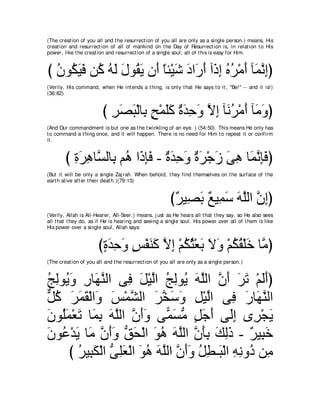 (The creation of you all and the resurrection of you all are only as a single person.) means, His
creation and resurrection of all of mankind on the Day of Resurrection is, in relation to His
power, like the creation and resurrection of a single soul; all of this is easy for Him.
﴿إِنَّمَآ أَمْرُهُ إِذَآ أَرَادَ شَيْئاً أَن يَقُولَ لَهُ كُن فَيَكُونُ ﴾
(Verily, His command, when He intends a thing, is only that He says to it, "Be!'' -- and it is!)
(36:82)
﴿وَمَآ أَمْرُنَآ إِلاَّ وَحِدَةٌ كَلَمْحٍ بِالْبَصَرِ ﴾
(And Our commandment is but one as the twinkling of an eye. ) (54:50). This means He only has
to command a thing once, and it will happen. There is no need for Him to repeat it or confirm
it.
﴿فَإِنَّمَا هِىَ زَجْرَةٌ وَحِدَةٌ - فَإِذَا هُم بِالسَّاهِرَةِ ﴾
(But it will be only a single Zajrah. When behold, they find themselves on the surface of the
earth alive after their death.)(79:13)
﴿إِنَّ اللَّهَ سَمِيعٌ بَصِيرٌ﴾
(Verily, Allah is All-Hearer, All-Seer.) means, just as He hears all that they say, so He also sees
all that they do, as if He is hearing and seeing a single soul. His power over all of them is like
His power over a single soul, Allah says:
﴿مَّا خَلْقُكُمْ وَلاَ بَعْثُكُمْ إِلاَّ كَنَفْسٍ وَحِدَةٍ﴾
(The creation of you all and the resurrection of you all are only as a single person.)
﴿أَلَمْ تَرَ أَنَّ اللَّهَ يُولِجُ الَّيْلَ فِى النَّهَارِ وَيُولِجُ
النَّهَارَ فِى الَّيْلِ وَسَخَّرَ الشَّمْسَ وَالْقَمَرَ كُلٌّ
يَجْرِى إِلَى أَجَلٍ مُّسَمًّى وَأَنَّ اللَّهَ بِمَا تَعْمَلُونَ
خَبِيرٌ - ذَلِكَ بِأَنَّ اللَّهَ هُوَ الْحَقُّ وَأَنَّ مَا يَدْعُونَ
مِن دُونِهِ الْبَـطِلُ وَأَنَّ اللَّهَ هُوَ الْعَلِىُّ الْكَبِيرُ ﴾